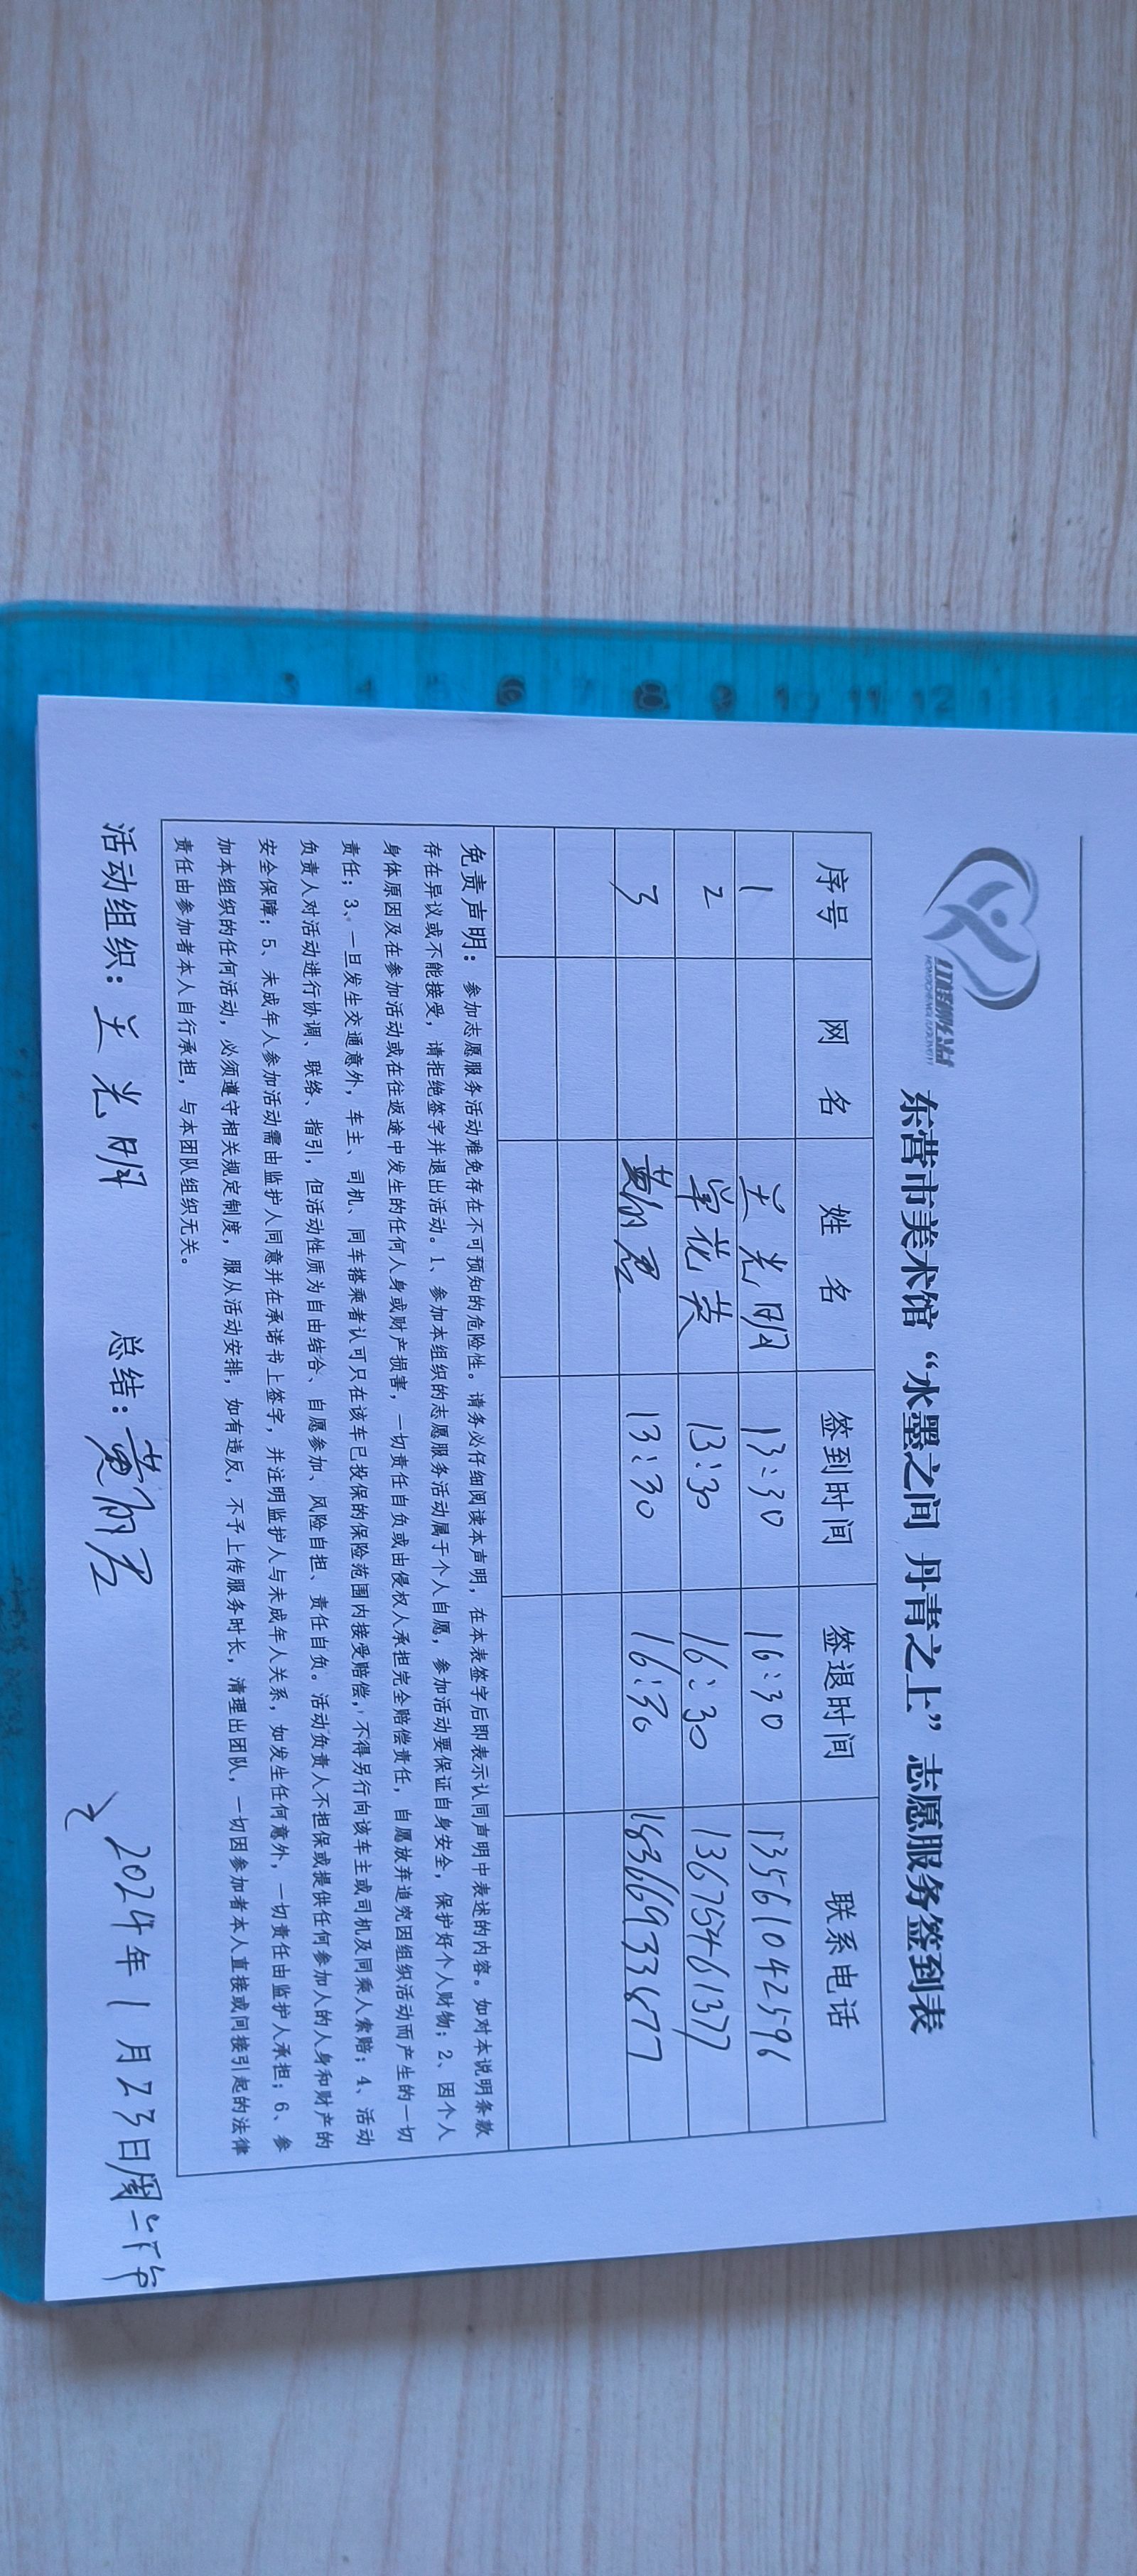 东营市美术馆“水墨之间 丹青之上”志愿服务签到表
序号 网 名 姓 名 签到时间 签退时间 联系电话
1 兰光明 13:30 16:30 13561042596
2 单花英 13:30 16:30 13675461377
3 13:30 16:30 18366933877
免责声明：参加志愿服务活动难免存在不可预知的危险性。请务必仔细阅读本声明，在本表签字后即表示认同声明中表述的内容。如对本说明条款
存在异议或不能接受，请拒绝签字并退出活动。1、参加本组织的志愿服务活动属于个人自愿，参加活动要保证自身安全，保护好个人财物；2、因个人
身体原因及在参加活动或在往返途中发生的任何人身或财产损害，一切责任自负或由侵权人承担完全赔偿责任，自愿放弃追究因组织活动而产生的一切
责任；3、一旦发生交通意外，车主、司机、同车搭乘者认可只在该车已投保的保险范围内接受赔偿，不得另行向该车主或司机及同乘人索赔；4、活动
负责人对活动进行协调、联络、指引，但活动性质为自由结合、自愿参加、风险自担、责任自负。活动负责人不担保或提供任何参加人的人身和财产的
安全保障；5、未成年人参加活动需由监护人同意并在承诺书上签字，并注明监护人与未成年人关系，如发生任何意外，一切责任由监护人承担；6、参
加本组织的任何活动，必须遵守相关规定制度，服从活动安排，如有违反，不予上传服务时长，清理出团队，一切因参加者本人直接或间接引起的法律
责任由参加者本人自行承担，与本团队组织无关。
活动组织：兰光明 总结： 2024年1月23日周二下午